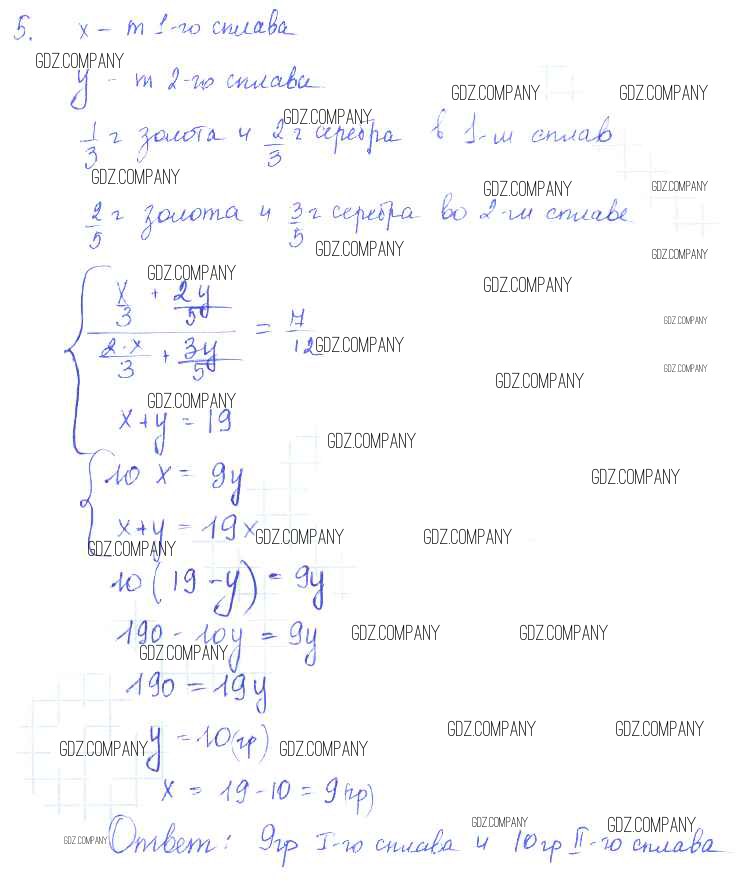 5. x – m 1-го сплава
GDZ.COMPANY
y – m 2-го сплава
GDZ.COMPANY GDZ.COMPANY
GDZ.COMPANY
1/3 г золота и 2/3 г серебра в 1-м сплав
GDZ.COMPANY
GDZ.COMPANY GDZ.COMPANY
2/5 г золота и 3/5 г серебра во 2-м сплаве
GDZ.COMPANY GDZ.COMPANY
GDZ.COMPANY GDZ.COMPANY
{ (x/3 + 2y/5) / (2·x/3 + 3y/5) = 7/12
GDZ.COMPANY
GDZ.COMPANY GDZ.COMPANY
GDZ.COMPANY
GDZ.COMPANY
x + y = 19
GDZ.COMPANY
{ 10 x = 9y
GDZ.COMPANY
x + y = 19 x
GDZ.COMPANY GDZ.COMPANY
GDZ.COMPANY
10(19 – y) = 9y
190 – 10y = 9y
GDZ.COMPANY GDZ.COMPANY
GDZ.COMPANY
190 = 19y
GDZ.COMPANY GDZ.COMPANY
y = 10(гр)
GDZ.COMPANY GDZ.COMPANY
x = 19 – 10 = 9(гр)
GDZ.COMPANY GDZ.COMPANY
GDZ.COMPANY
Ответ: 9гр I-го сплава и 10гр II-го сплава